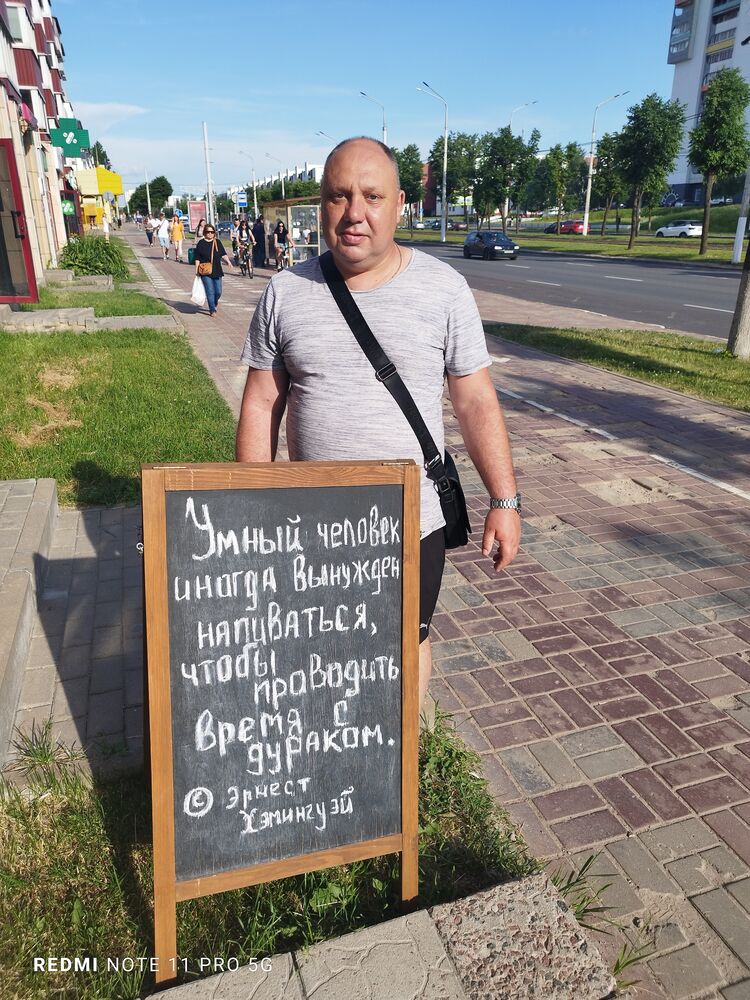 Умный человек
иногда вынужден
напиваться,
чтобы
проводить
время с
дураком.
© Эрнест
Хэмингуэй
REDMI NOTE 11 PRO 5G